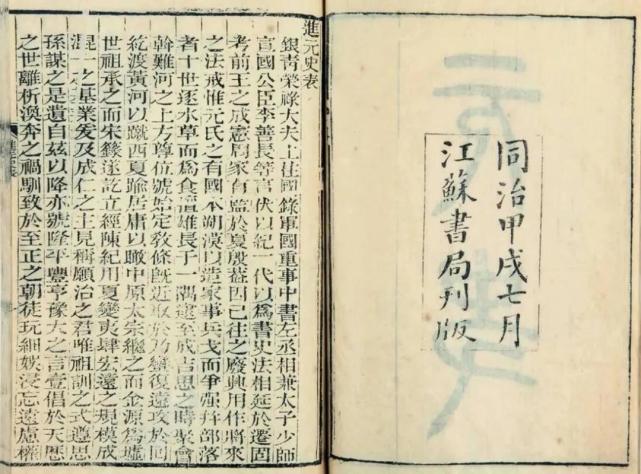 同治甲戌七月
江蘇書局刊版
進元史表
銀青榮祿大夫上柱國錄軍國重事中書左丞相兼太子少師
宣國公臣李善長等言伏以紀一代以爲書史法相延於遷固
考前王之成憲周家有監於夏殷葢因已往之廢興用作將來
之法戒惟元氏之有國本朔漠以造家事兵戈而爭强幷部落
者十世逐水草而爲食擅雄長于一隅逮至成吉思之時聚會
斡難河之上方尊位號始定敎條旣近取於乃蠻復遠攻於回
紇渡黃河以蹴西夏踰居庸以瞰中原太宗繼之而金源爲墟
世祖承之而宋籙遂訖立經陳紀用夏變夷肆宏遠之規模成
混一之基業爰及成仁之主見稱願治之君唯祖訓之式遵思
孫謀之是遺自茲以降亦號隆平豐亨豫大之言壹倡於天歷
之世離析渙奔之禍馴致於至正之朝徒玩細娛浸忘遠慮權